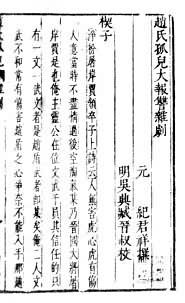 趙氏孤兒大報讐雜劇
元　紀君祥撰
明吳興臧晉叔校
楔子
淨扮屠岸賈領卒子上詩云人無害虎心虎有傷
人意當時不盡情過後空淘氣某乃晉國大將屠
岸賈是也俺主靈公在位文武千員其信任的只
有一文一武文者是趙盾武者即某矣俺二人文
武不和常有傷害趙盾之心爭奈不能入手那趙